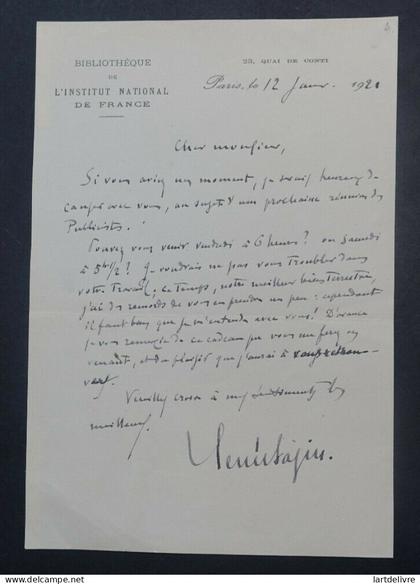 BIBLIOTHÈQUE
DE
L'INSTITUT NATIONAL
DE FRANCE
23, QUAI DE CONTI
Paris, le 12 Janv. 1921
Cher monsieur,
Si vous aviez un moment, je serais heureux de
causer avec vous, au sujet d'une prochaine réunion des
Publicistes.
Pouvez vous venir vendredi à 6 heures? ou samedi
à 5h 1/2? Je voudrais ne pas vous troubler dans
votre travail, ce temps, notre meilleur bien terrestre,
j'ai des remords de vous en prendre un peu: cependant
il faut bien que je m'entende avec vous! D'avance
je vous remercie de ce cadeau que vous me ferez en
venant, et du plaisir que j'aurai à vous
Veuillez croire à mes sentiments les
meilleurs.
www.delcampe.net
lartdelivre